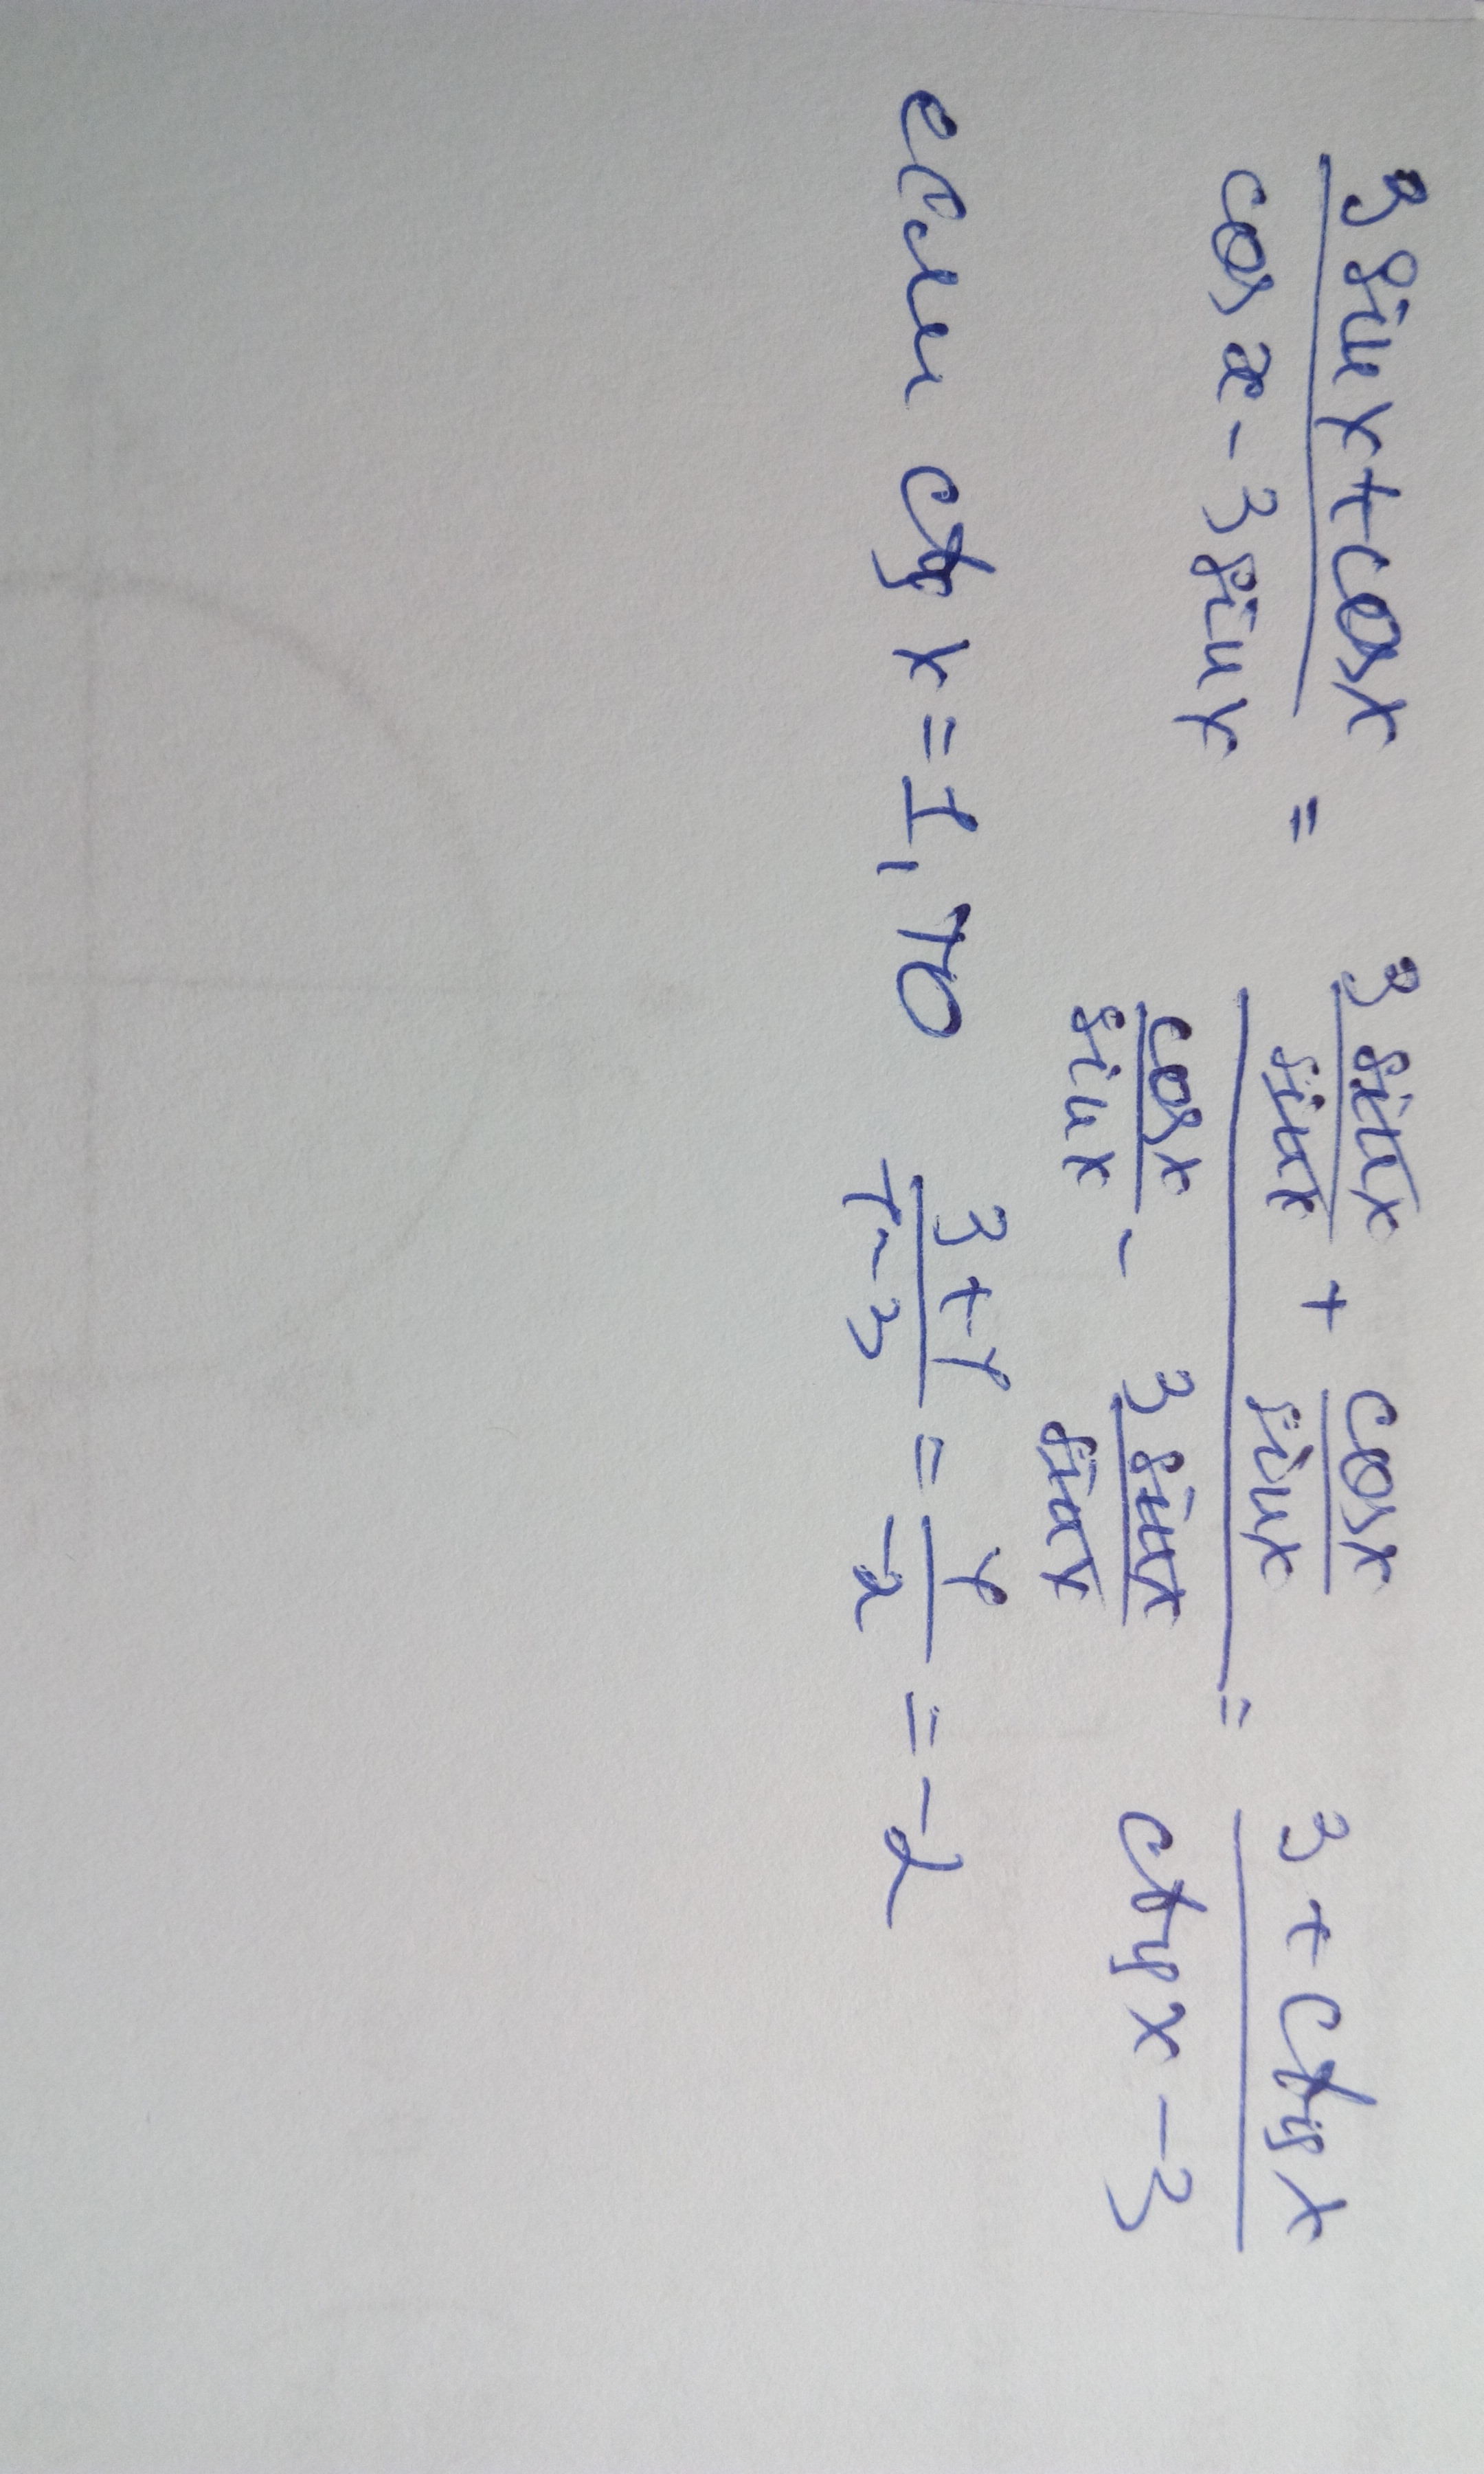 3 sin x + cos x / cos x - 3 sin x = (3 sin x / sin x + cos x / sin x) / (cos x / sin x - 3 sin x / sin x) = 3 + ctg x / ctg x - 3
если ctg x = 1, то 3+1 / 1-3 = 4 / -2 = -2